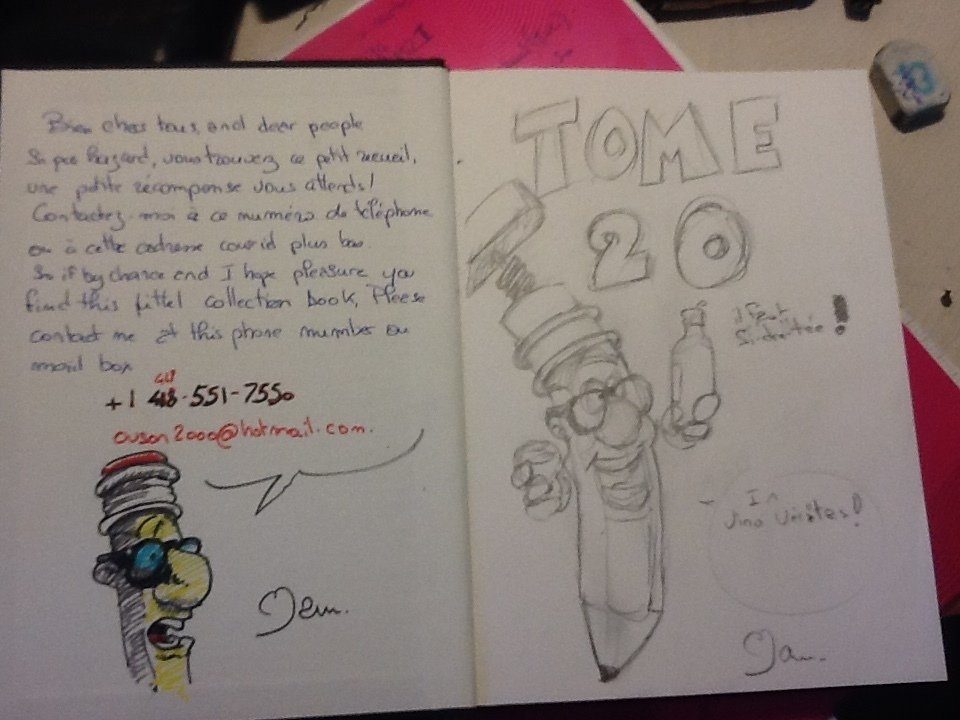 Bien chers tous, and dear people
Si par hazard, vous trouvez ce petit recueil,
une petite récompense vous attends!
Contactez-moi à ce numéro de téléphone
ou à cette adresse couriel plus bas.
So if by chance and I hope pleasure you
find this littel collection book, Please
contact me at this phone number ou
mail box
+1 418-551-7550
418
ouson2000@hotmail.com.
TOME
20
In
Vino Véritas!